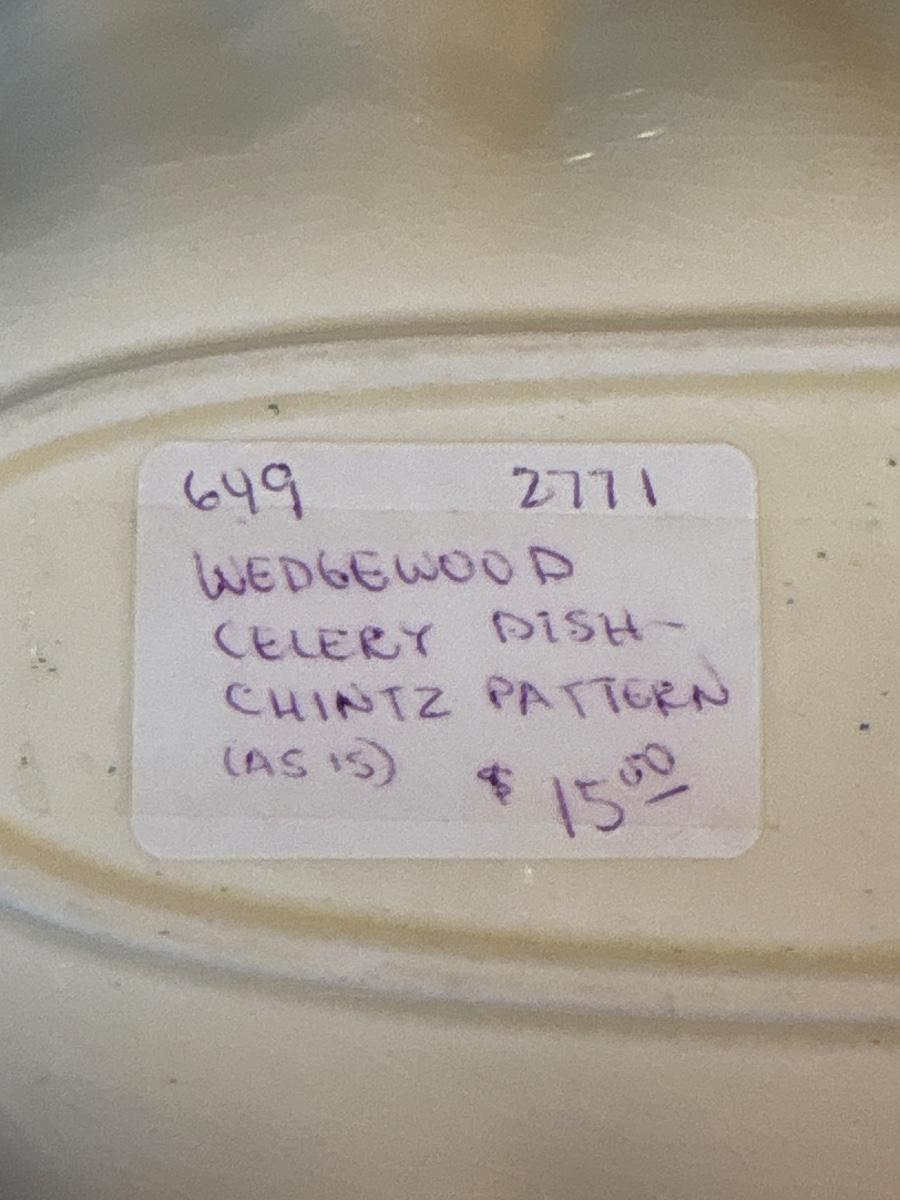 649 2771
WEDGEWOOD
CELERY DISH-
CHINTZ PATTERN
(AS IS) $ 15.00